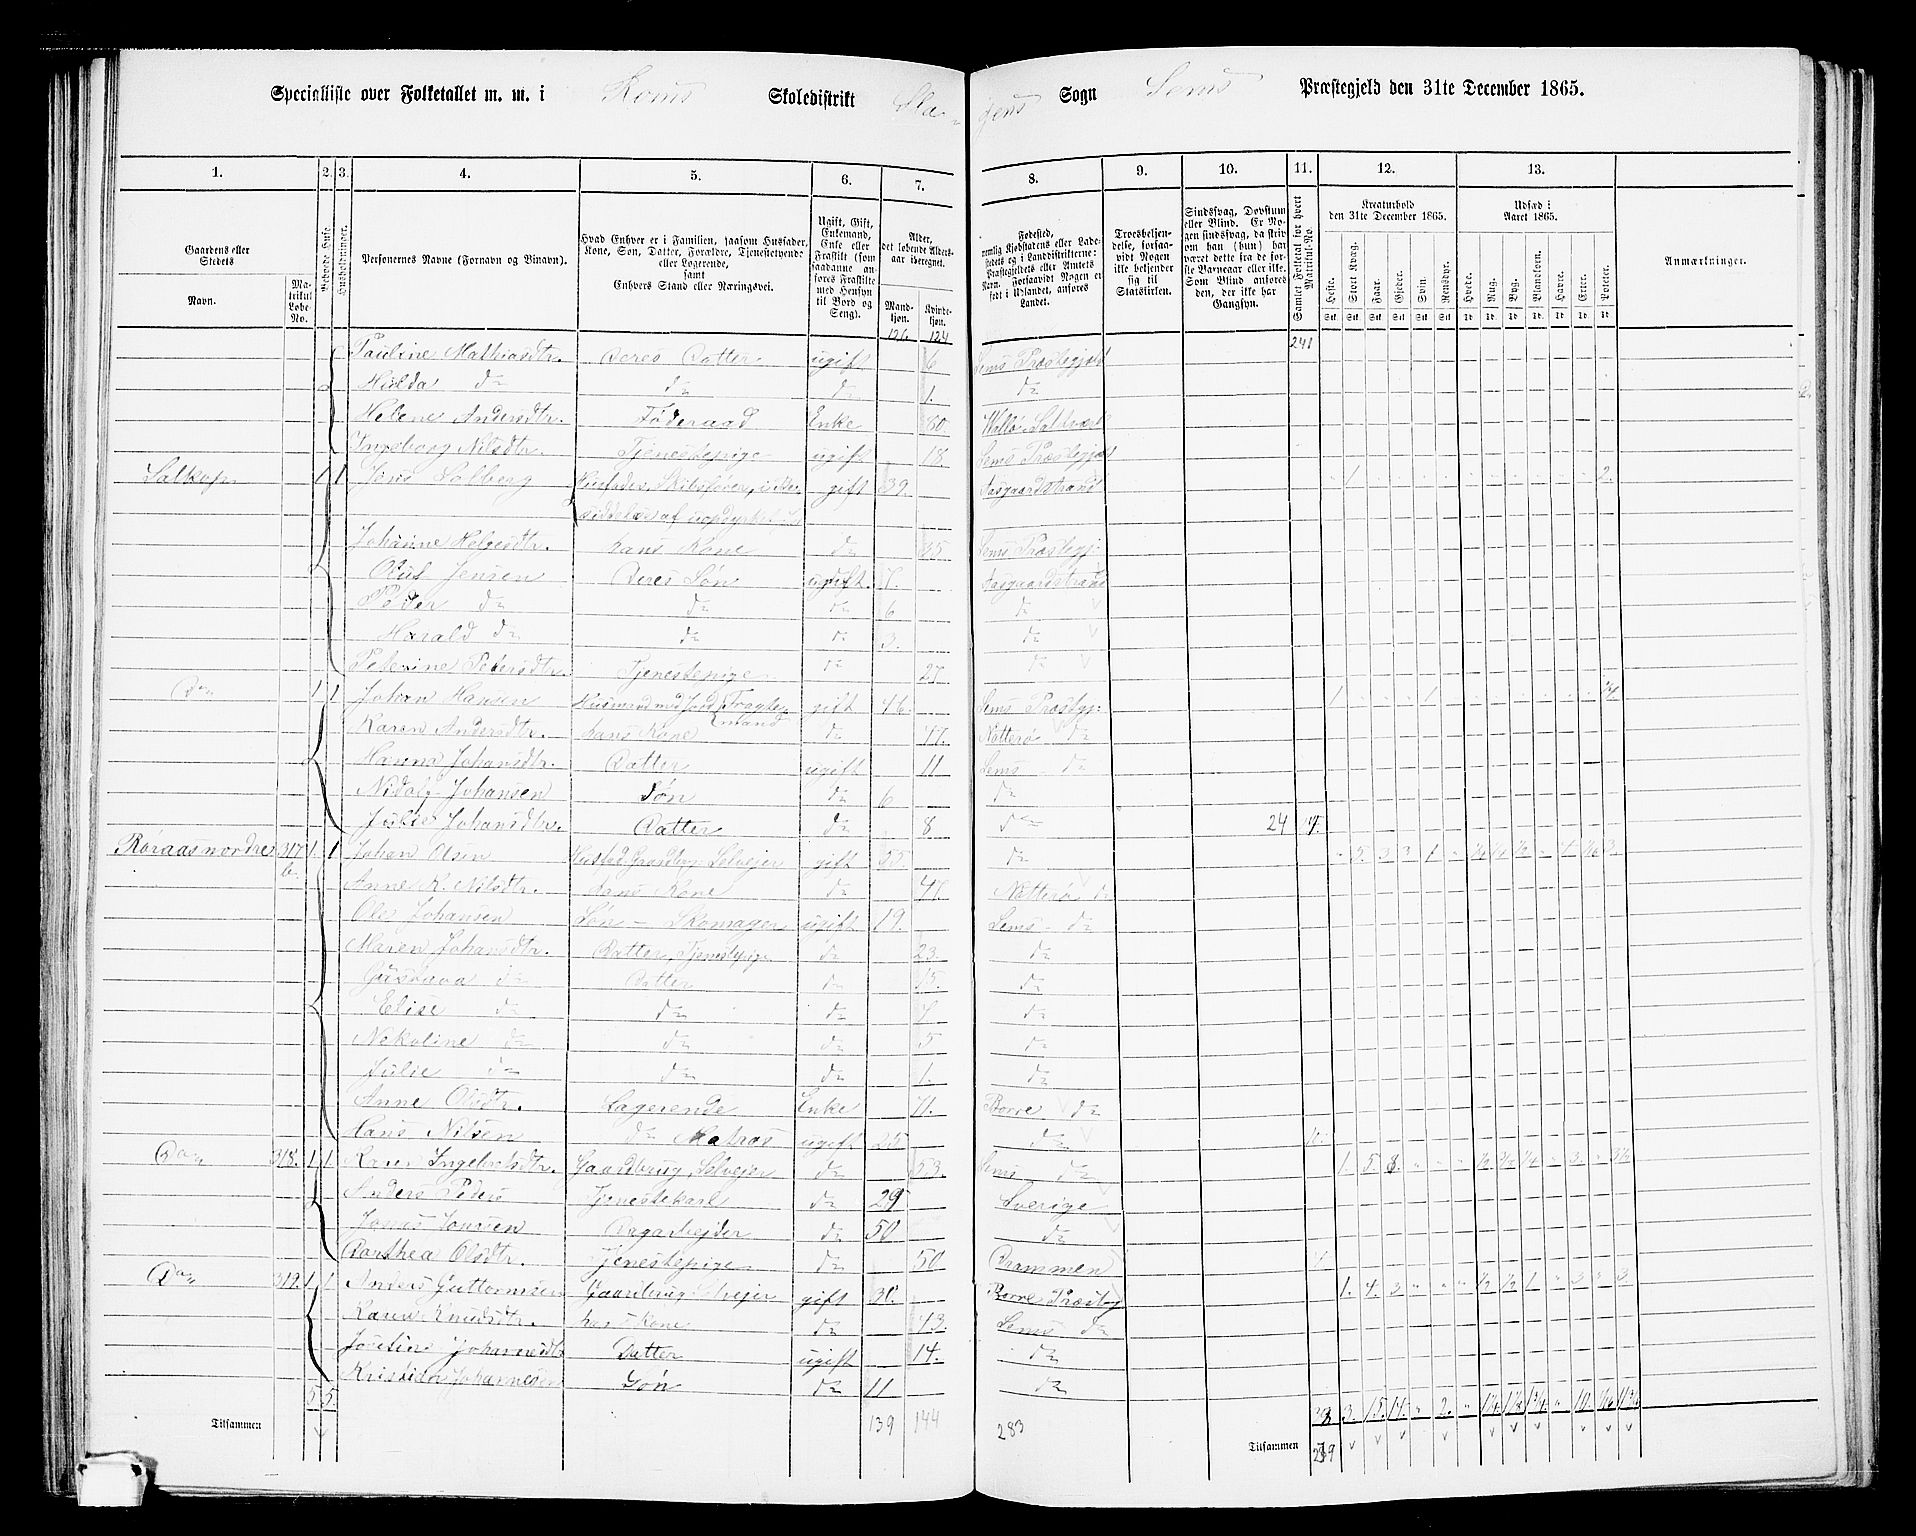 Specialliste over Folketallet m. m. i Roms Skoledistrikt Sla- gens Sogn Sems Præstegjeld den 31te December 1865.
1. 2. 3. 4. 5. 6. 7. 8. 9. 10. 11. 12. 13.
Gaardens eller Stedets
Navn.
Matrikul Løbe-No.
Beboede Huse.
Husholdninger.
Personernes Navne (Fornavn og Binavn).
Hvad Enhver er i Familien, saasom Husfader, Kone, Søn, Datter, Forældre, Tjenestetyende eller Logerende, samt Enhvers Stand eller Næringsvei.
Ugift, Gift, Enkemand, Enke eller Fraskilt (som saadanne anføres Fraskilte med Hensyn til Bord og Seng).
Alder, det løbende Alders-aar iberegnet.
Mandkjøn.
Kvindekjøn.
Fødested, nemlig Kjøbstadens eller Ladestedets eller i Landdistrikterne: Præstegjeldets eller Amtets Navn. Forsaavidt Nogen er født i Udlandet, anføres Landet.
Troesbekjendelse, forsaavidt Nogen ikke bekjender sig til Statskirken.
Sindssvag, Døvstum eller Blind. Er Nogen sindssvag, da skrives han (hun) har været dette fra de første Barneaar eller ikke. Som Blind anføres den, der ikke har Gangsyn.
Samlet Folketal for hvert Matrikul-No.
Kreaturhold den 31te December 1865.
Heste. Stort Kvæg. Faar. Gjeder. Svin. Rensdyr.
Udsæd i Aaret 1865.
Hvede. Rug. Byg. Blandkorn. Havre. Erter. Poteter.
Anmærkninger.
126 124 241
Pauline Mathiasdtr. Deres Datter ugift 6 Sems Præstegjeld
Hulda do do do 1. do
Helene Andersdtr. Føderaad Enke 80.
Ingeborg Nilsdtr. Tjenestepige ugift 18. Sems Præstegjeld
1 1 Jens Solberg gift 39. Aasgaardstrand 1 2.
Johanne Helgesdtr. hans Kone do 35 Sems Præstegj:
Olus Jensen Deres Søn ugift 7. Aasgaardstrand
Peder do do do 6 do
Harald do do do 3. do
Peterine Pedersdtr. Tjenestepige do 27. do
Do 1 1 Johan Hansen Husmand med Jord, Fragtemand gift 46. Sems Præstgj: 1 1
Karen Andersdtr. hans Kone do 47. Nøtterø do
Hanna Johansdtr. Datter ugift 11 Sems do
Nidolf Johansen Søn do 6 do
Julie Johansdtr. Datter do 8 do 24
Røraas nordre 317 b. 1. 1 Johan Olsen gift 55 do 5. 3 3 1
Anne K. Nilsdtr. Hans Kone do 47. Nøtterø do
Ole Johansen Søn - Skomager ugift 19. Sems do
Maren Johansdtr. Datter, Tjenestepige do 23. do
Gustava do Datter do 15. do
Elise do do do 7 do
Nekoline do do do 5 do
Julie do do do 1. do
Anne Olsdtr. Logerende Enke 71. Borre do
Hans Nilsen do Matros ugift 25 do
Do 318. 1 1 Karen Ingebretsdtr. Gaardbrug, Selveier do 53. Sems do 1. 5. 8.
Anders Peders Tjenestekarl do 29 Sverige
Jonas Jonsen Dagarbejder do 50 do
Dorthea Olsdtr. Tjenestepige do 50 Drammen 4
Do 319. 1 1 Anders Guttormsen Gaardbrug, Selvejer gift 31. Borre Præstg 1. 4. 3
Karen Knudsdtr. hans Kone do 43. Sems do
Josefine Johannesdtr Datter ugift 14. do
Kristian Johannesen Søn do 11 do
5 5. 3. 15. 17. 2.
Tilsammen 139 144 283 Tilsammen